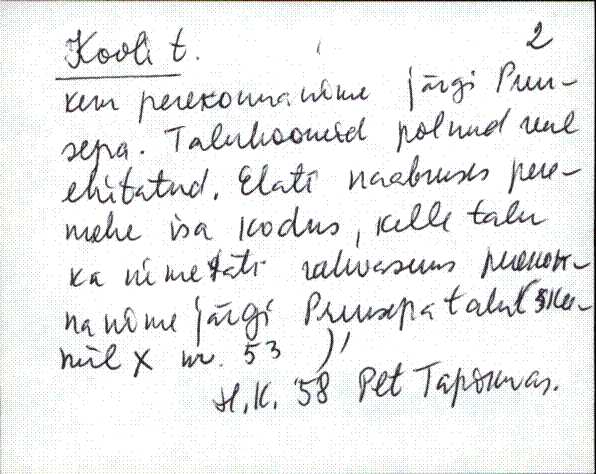 Kooli t. 2
kem perekonnanime järgi Pruu-
sepa. Taluhooneid polnud veel
ehitatud. Elati naabruses pere-
mehe isa kodus, kelle talu
ka nimetati rahvasuus perekon-
nanime järgi Pruusepa talu (
X nr. 53 )
H.K. '58 Plt